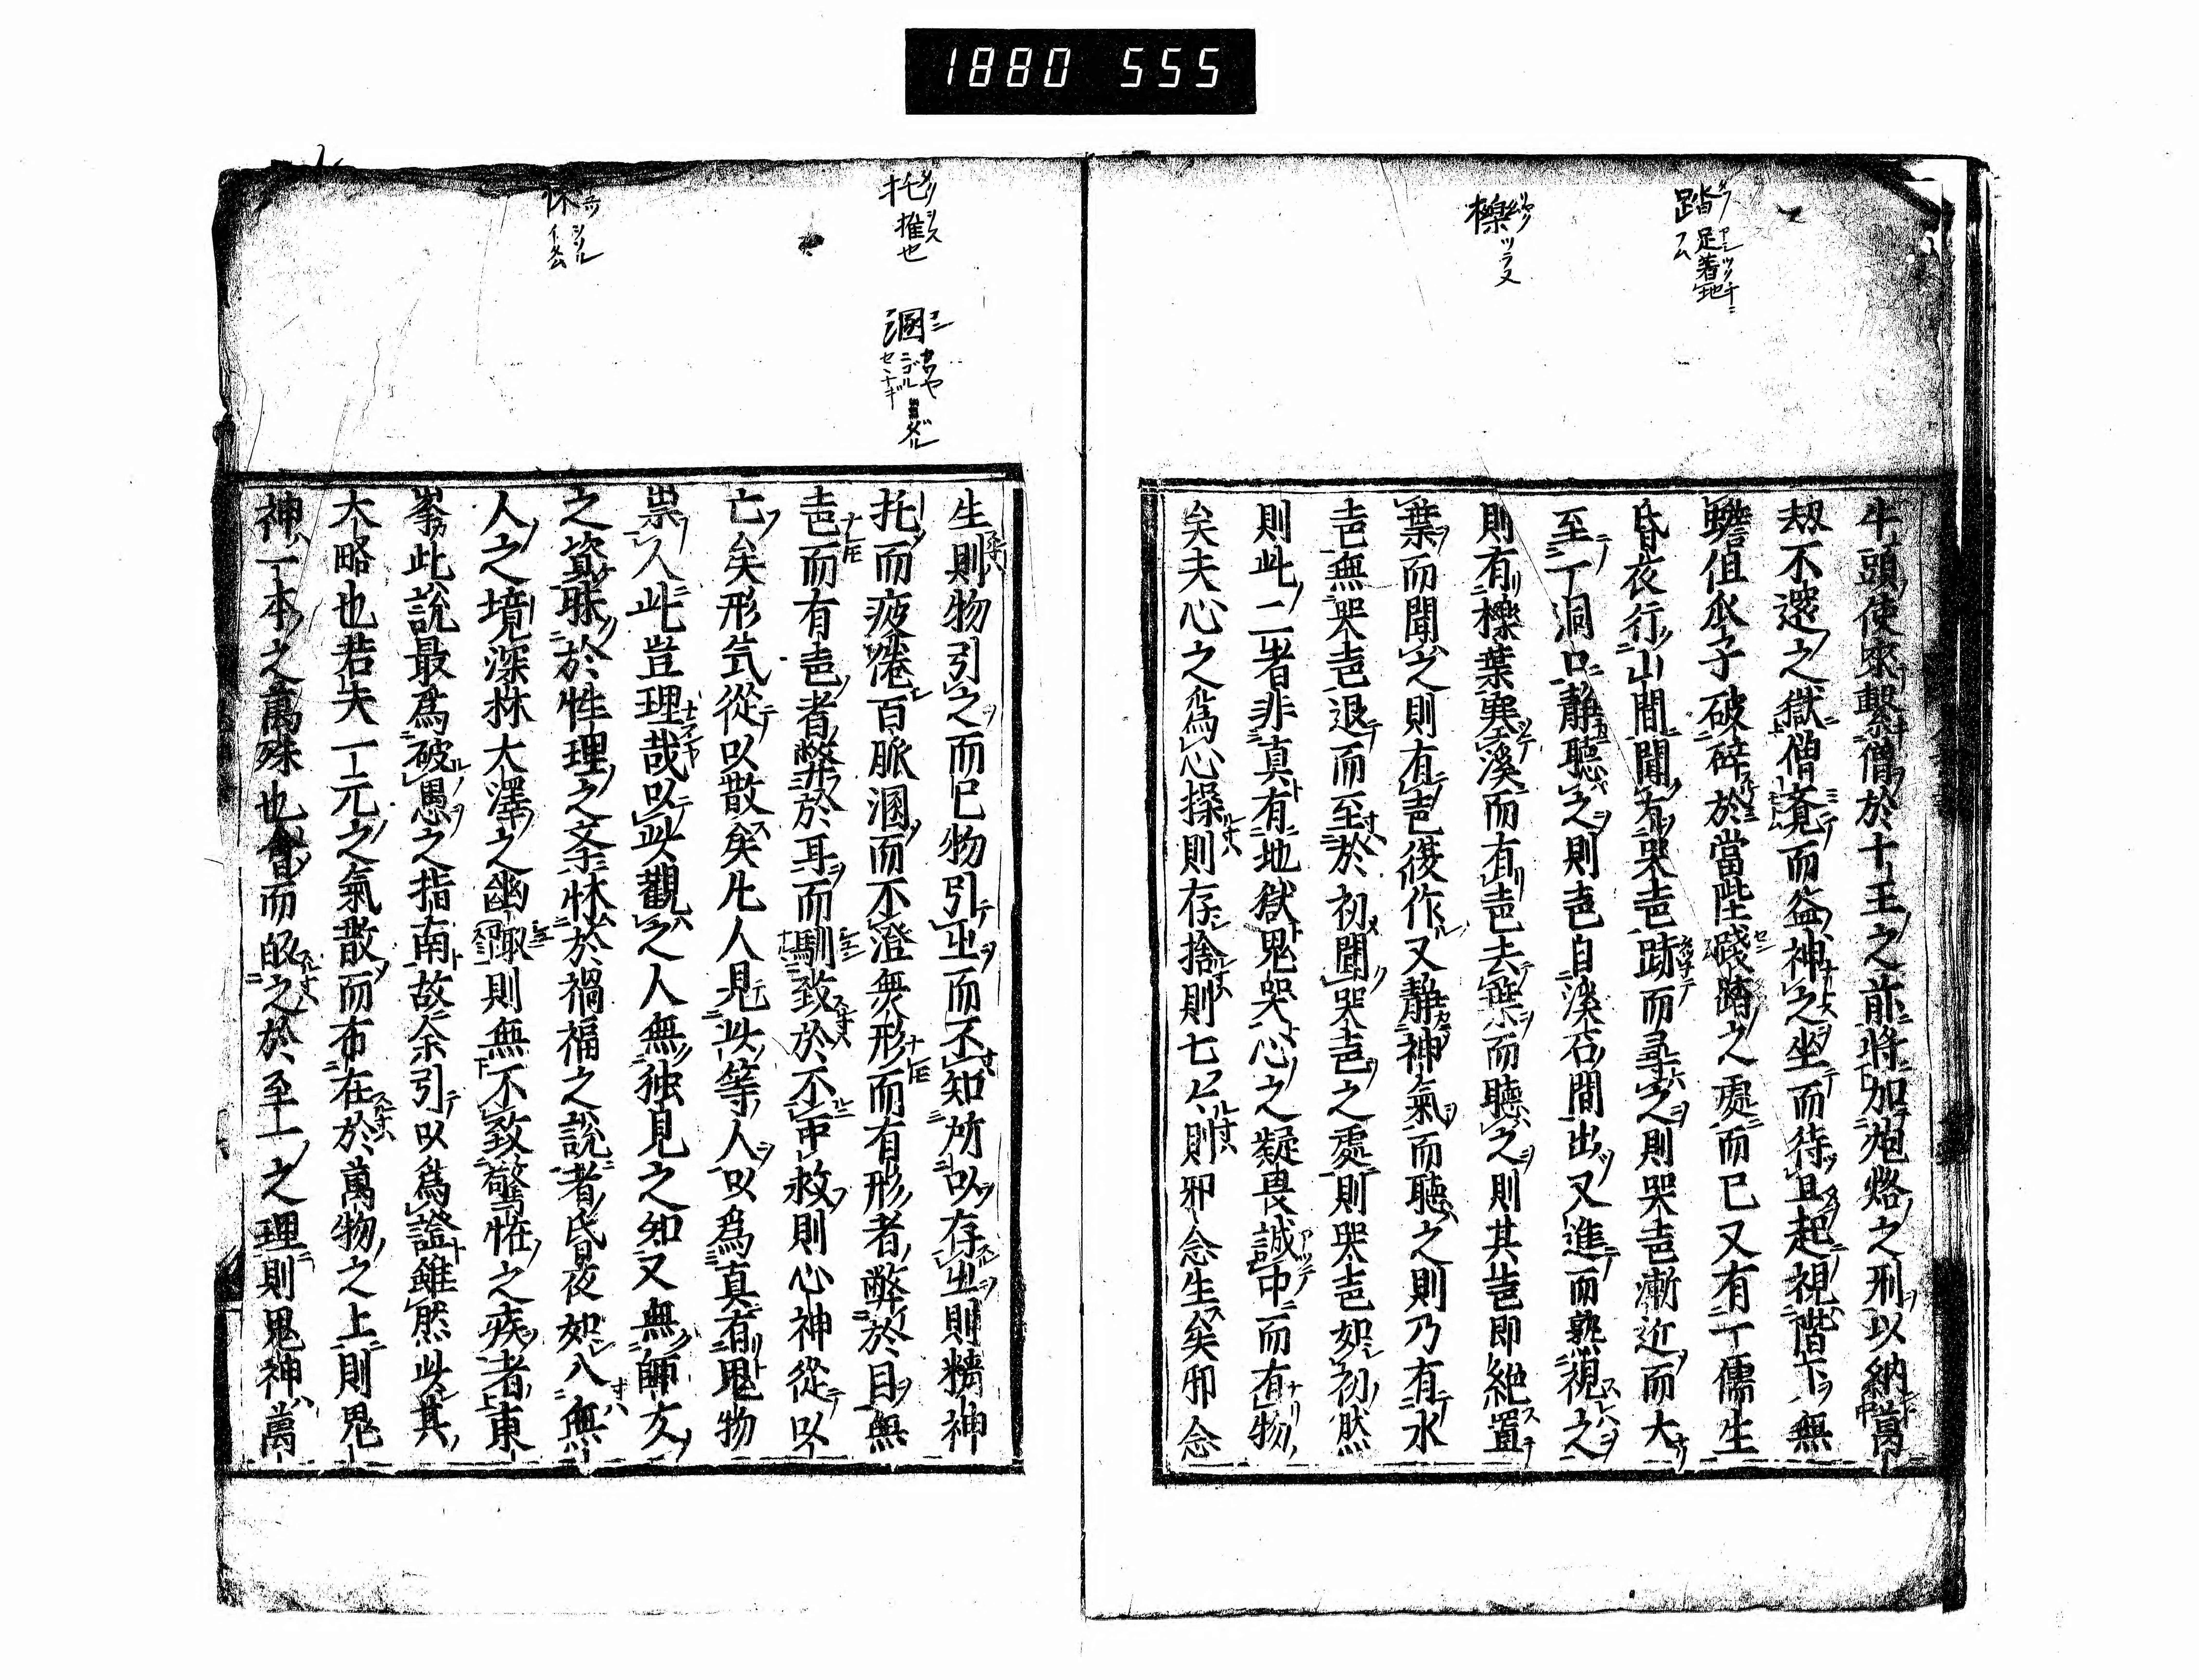 1880 555
踏 足着地 フム
櫟
托 推也
溷
牛頭使來繫僧於十王之前將加炮烙之刑以納萬
刼不還之獄僧竟而益神之坐而待旦起視階下無
蟾但瓜子破碎於當陛踐踏之處而已又有一儒生
昏夜行山間聞有哭声跡而尋之則哭声漸近而大
至一洞口靜聽之則声自溪石間出又進而熟視之
則有櫟葉塞溪而有声去葉而聽之則其声即絶置
葉而聞之則有声復作又靜神氣而聽之則乃有水
声無哭声退而至於初聞哭声之處則哭声如初然
則此二者非真有地獄鬼哭心之疑畏誠中而有物
矣夫心之為心操則存捨則亡亡則邪念生矣邪念
生則物引之而已物引之而不知所以存之則精神
托而疲倦百脈溷而不澄無形而有形者弊於目無
声而有声者弊於耳而馴致於不可救則心神從以
亡矣形氣從以散矣凡人見此等人以為真有鬼物
祟人此豈理哉以此觀之人無独見之知又無師友
之資昧於性理之奈怵於禍福之說者昏夜如入無
人之境深林大澤之幽闃則無不致驚恠之疾者東
峯此說最為破愚之指南故余引以為證雖然此其
大略也若夫一元之氣散而布在於萬物之上則鬼
神一本之萬殊也會而皈之於至一之理則鬼神萬